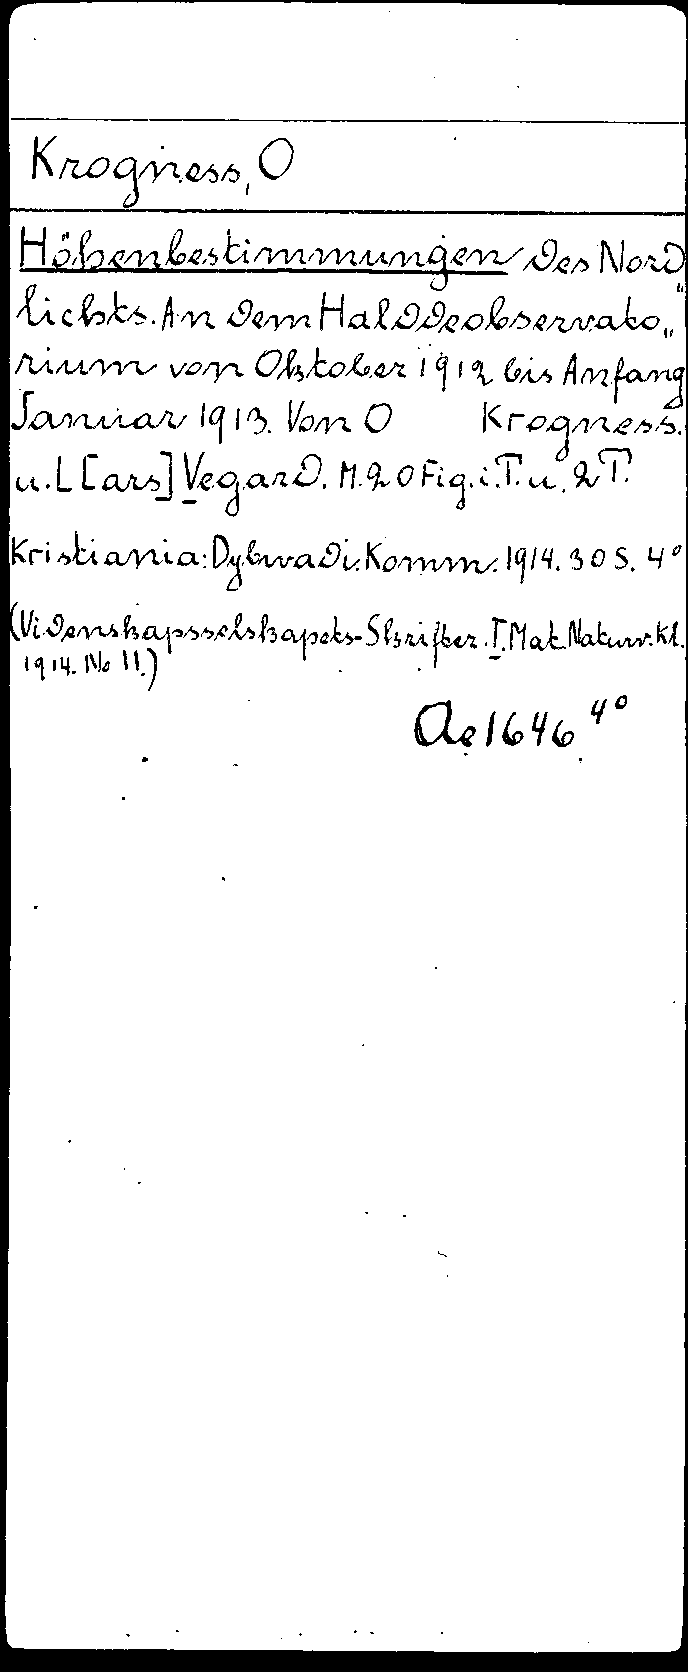 Krogness, O
Höhenbestimmungen des Nord„
lichts. An dem Halddeobservato„
rium von Oktober 1912 bis Anfang
Januar 1913. Von O Krogness.
u. L[ars] Vegard. M. 20 Fig. i. T. u. 2 T.
Kristiania: Dybwad i. Komm. 1914. 30 S. 4°
(Videnskapsselskapets-Skrifter. I. Mat. Naturv. Kl.
1914. No 11.)
Ae 1646 4°